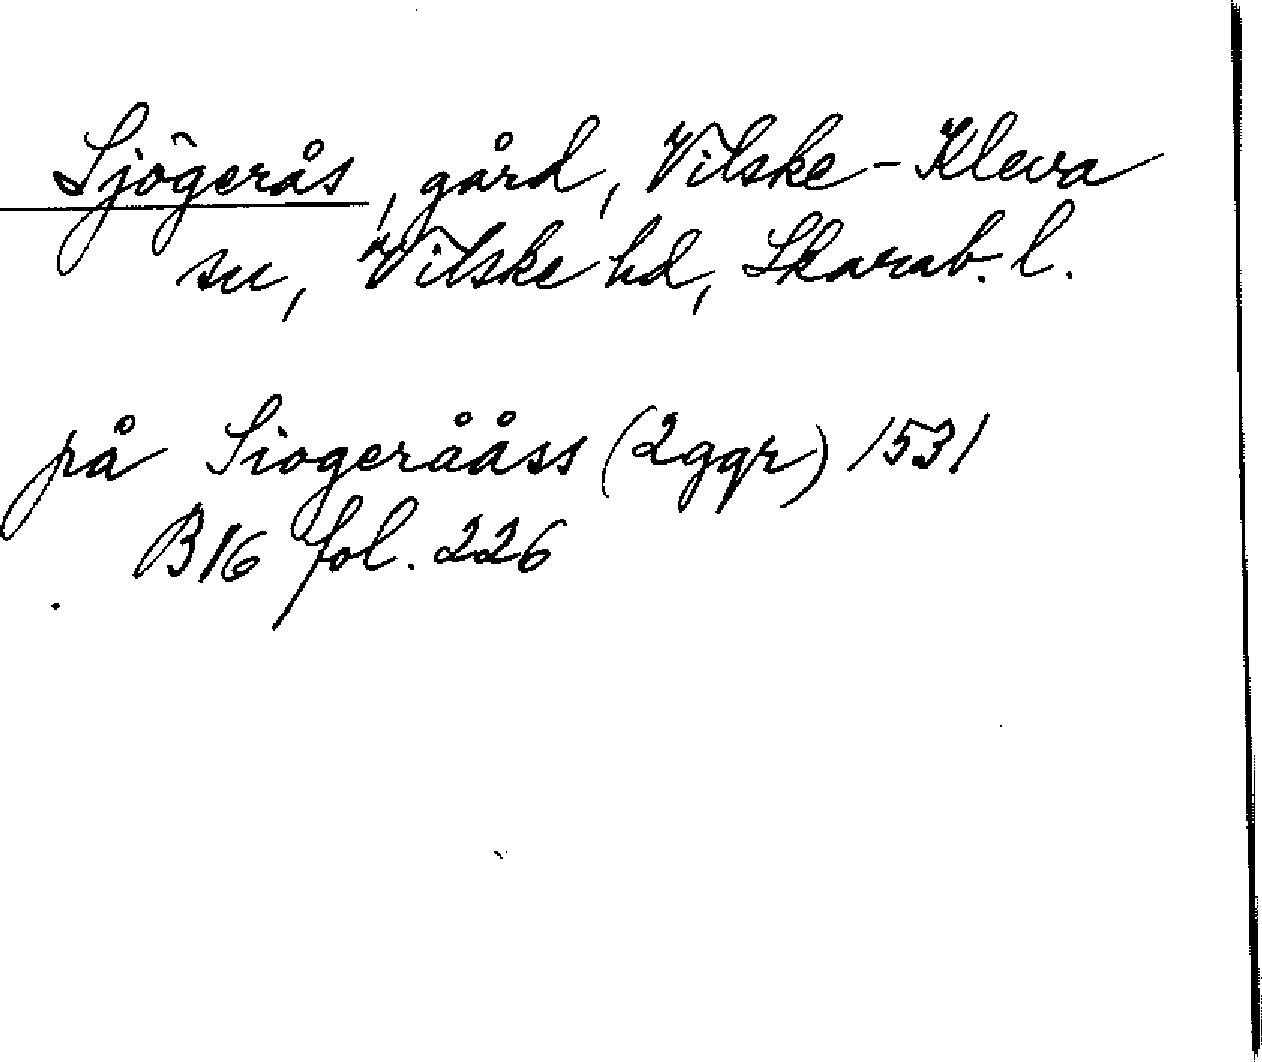 Sjögerås, gård, Vilske-Kleva
sn, Vilske hd, Skarab. l.
på Siogerååss (2ggr) 1531
B16 fol. 226